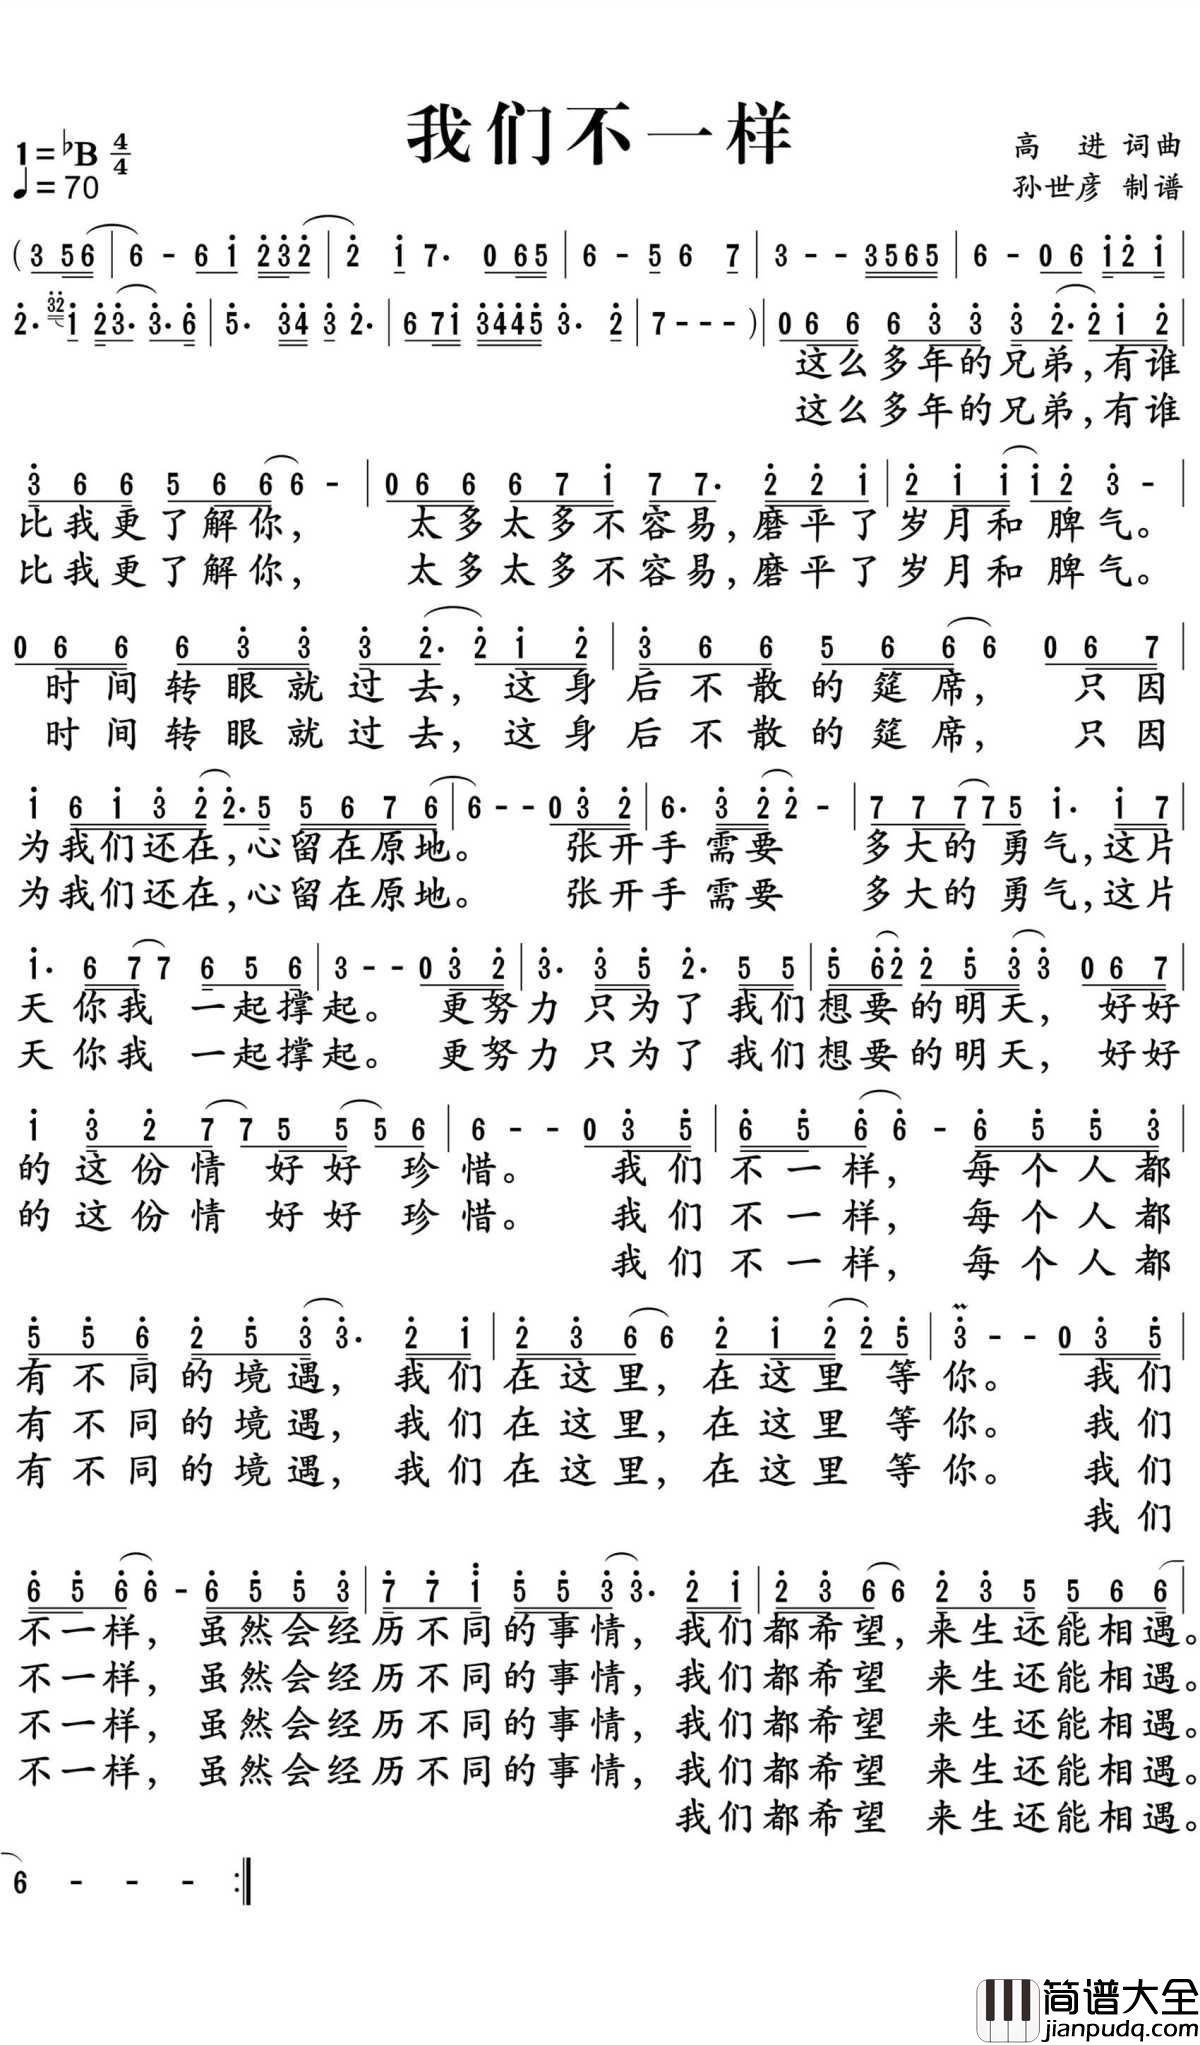 我们不一样
1=♭B 4/4
♩=70
高 进 词曲
孙世彦 制谱
( 3 5 6 | 6 - 6 1 2 3 2 | 2 1 7. 0 6 5 | 6 - 5 6 7 | 3 - - 3 5 6 5 | 6 - 0 6 1 2 1 |
2. 32 1 2 3. 3. 6 | 5. 3 4 3 2. | 6 7 1 3 4 4 5 3. 2 | 7 - - - ) | 0 6 6 6 3 3 3 2. 2 1 2 |
这么多年的兄弟,有谁
这么多年的兄弟,有谁
3 6 6 5 6 6 6 - | 0 6 6 6 7 1 7 7. 2 2 1 | 2 1 1 1 2 3 - |
比我更了解你, 太多太多不容易,磨平了岁月和脾气。
比我更了解你, 太多太多不容易,磨平了岁月和脾气。
0 6 6 6 3 3 3 2. 2 1 2 | 3 6 6 5 6 6 6 0 6 7 |
时间转眼就过去,这身后不散的筵席, 只因
时间转眼就过去,这身后不散的筵席, 只因
1 6 1 3 2 2. 5 5 6 7 6 | 6 - - 0 3 2 | 6. 3 2 2 - | 7 7 7 7 5 1. 1 7 |
为我们还在,心留在原地。 张开手需要 多大的勇气,这片
为我们还在,心留在原地。 张开手需要 多大的勇气,这片
1. 6 7 7 6 5 6 | 3 - - 0 3 2 | 3. 3 5 2. 5 5 | 5 6 2 2 5 3 3 0 6 7 |
天你我 一起撑起。 更努力只为了我们想要的明天, 好好
天你我 一起撑起。 更努力只为了我们想要的明天, 好好
1 3 2 7 7 5 5 5 6 | 6 - - 0 3 5 | 6 5 6 6 - 6 5 5 3 |
的这份情好好珍惜。 我们不一样, 每个人都
的这份情好好珍惜。 我们不一样, 每个人都
我们不一样, 每个人都
5 5 6 2 5 3 3. 2 1 | 2 3 6 6 2 1 2 2 5 | 3 - - 0 3 5 |
有不同的境遇, 我们在这里,在这里等你。 我们
有不同的境遇, 我们在这里,在这里等你。 我们
有不同的境遇, 我们在这里,在这里等你。 我们
我们
6 5 6 6 - 6 5 5 3 | 7 7 1 5 5 3 3. 2 1 | 2 3 6 6 2 3 5 5 6 6 |
不一样, 虽然会经历不同的事情,我们都希望,来生还能相遇。
不一样, 虽然会经历不同的事情,我们都希望 来生还能相遇。
不一样, 虽然会经历不同的事情,我们都希望 来生还能相遇。
不一样, 虽然会经历不同的事情,我们都希望 来生还能相遇。
我们都希望 来生还能相遇。
6 - - - :|
简谱大全
jianpudq.com